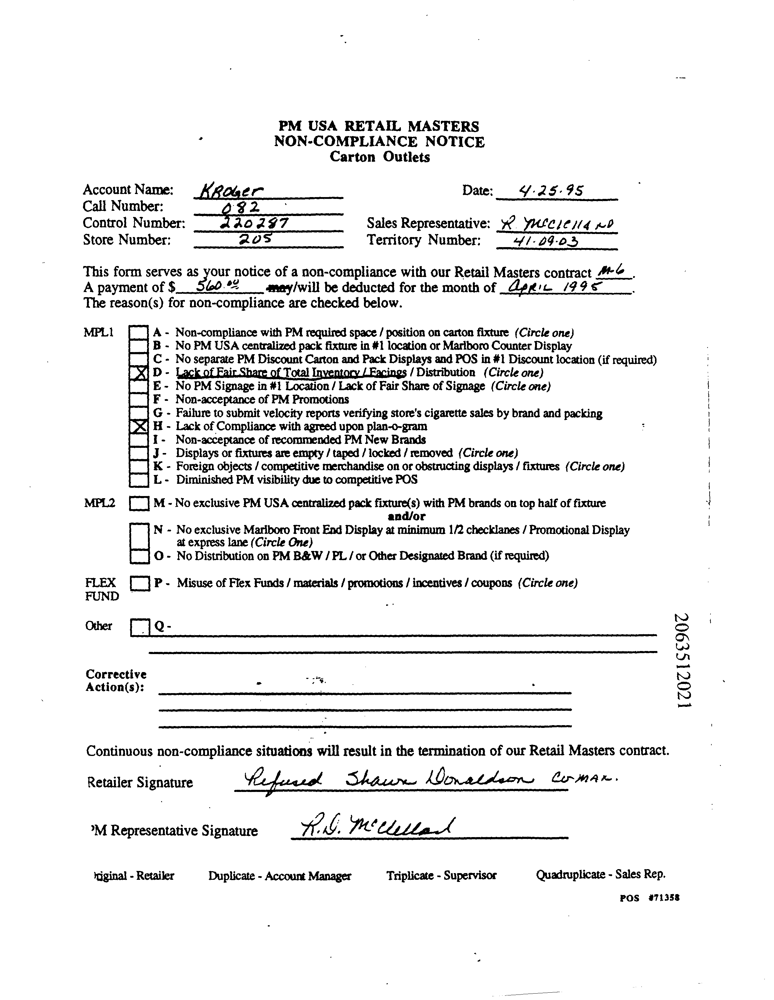 PM USA RETAIL MASTERS
NON-COMPLIANCE NOTICE
Carton Outlets
Account Name: Kroger Date: 4·25·95
Call Number: 082
Control Number: 220287 Sales Representative: R McClelland
Store Number: 205 Territory Number: 41·09·03
This form serves as your notice of a non-compliance with our Retail Masters contract M-6.
A payment of $ 560.00 may/will be deducted for the month of April 1995.
The reason(s) for non-compliance are checked below.
MPL1 A - Non-compliance with PM required space / position on carton fixture (Circle one)
B - No PM USA centralized pack fixture in #1 location or Marlboro Counter Display
C - No separate PM Discount Carton and Pack Displays and POS in #1 Discount location (if required)
X D - Lack of Fair Share of Total Inventory / Facings / Distribution (Circle one)
E - No PM Signage in #1 Location / Lack of Fair Share of Signage (Circle one)
F - Non-acceptance of PM Promotions
G - Failure to submit velocity reports verifying store's cigarette sales by brand and packing
X H - Lack of Compliance with agreed upon plan-o-gram
I - Non-acceptance of recommended PM New Brands
J - Displays or fixtures are empty / taped / locked / removed (Circle one)
K - Foreign objects / competitive merchandise on or obstructing displays / fixtures (Circle one)
L - Diminished PM visibility due to competitive POS
MPL2 M - No exclusive PM USA centralized pack fixture(s) with PM brands on top half of fixture
and/or
N - No exclusive Marlboro Front End Display at minimum 1/2 checklanes / Promotional Display
at express lane (Circle One)
O - No Distribution on PM B&W / PL / or Other Designated Brand (if required)
FLEX P - Misuse of Flex Funds / materials / promotions / incentives / coupons (Circle one)
FUND
Other Q -
2063512021
Corrective
Action(s):
Continuous non-compliance situations will result in the termination of our Retail Masters contract.
Retailer Signature Refused Shawn Donaldson
'M Representative Signature R.D. McClelland
riginal - Retailer Duplicate - Account Manager Triplicate - Supervisor Quadruplicate - Sales Rep.
POS #71358